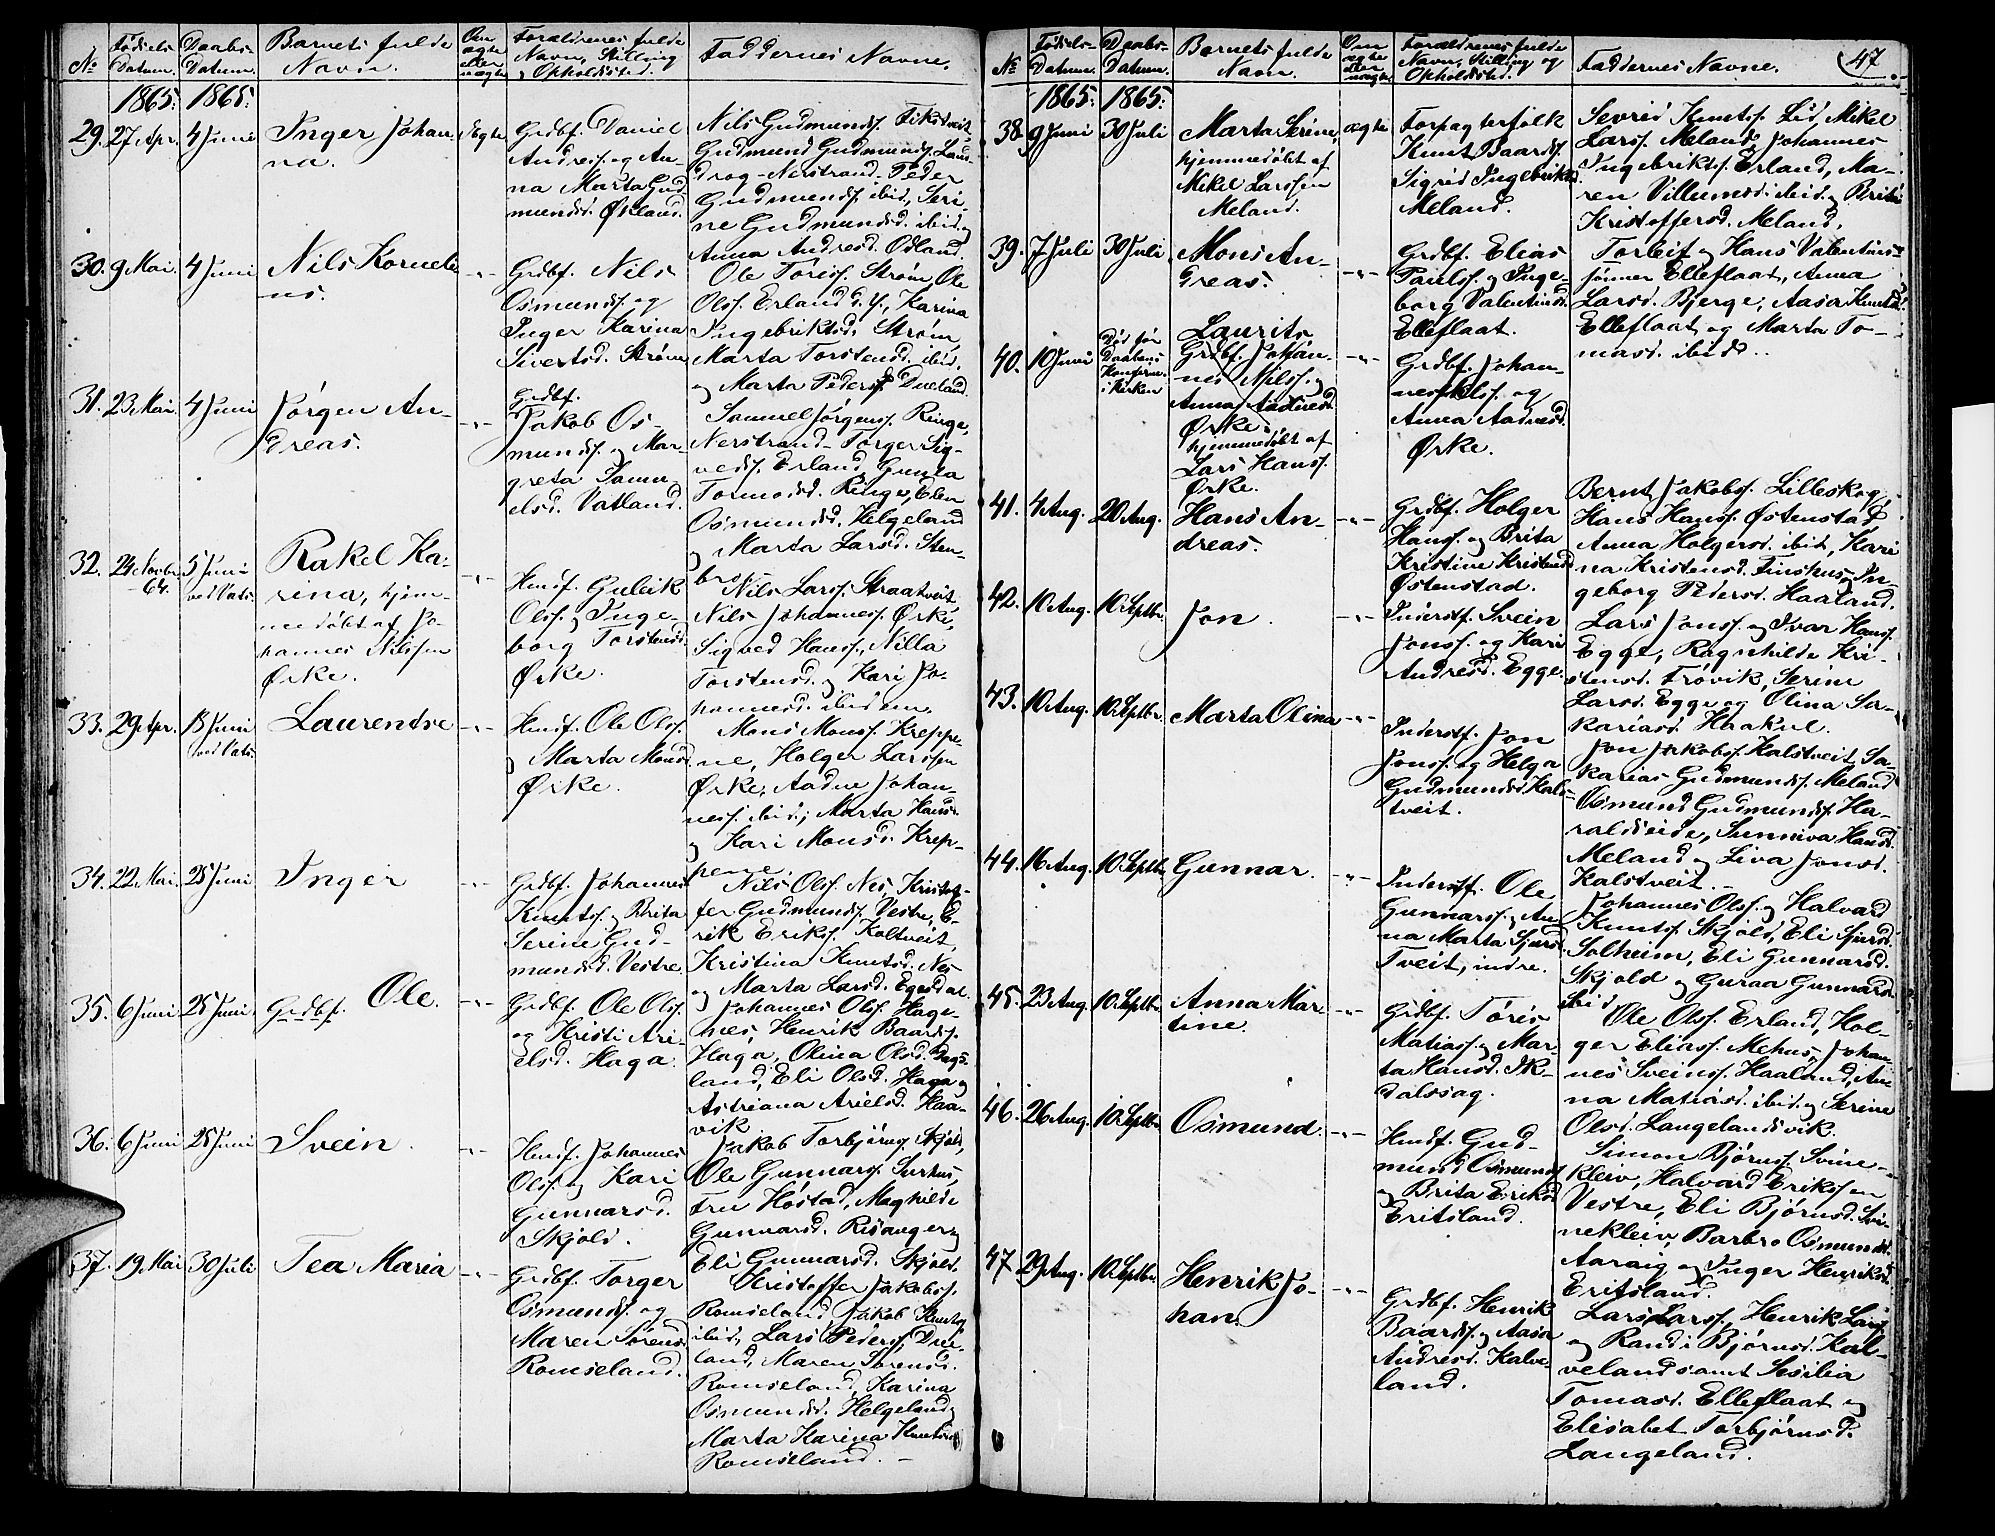 No
Fødsels
Datum.
Daabs-
Datum.
Barnets fulde
Navn.
Om
ægte
eller
uægte
Forældrenes fulde
Navn, Stilling
og Opholdssted.
Faddernes Navne.
1865. 1865.
29. 27 Apr. 4 Juni
Inger Johan-
na.
Ægte
Grdbf. Daniel
Andress. og An-
na Marta Gud-
mundsd. Økland.
Nils Gudmunds. Fikstveit
Gudmund Gudmunds. Laus-
drag-Nerstrand. Peder
Gudmunds. ibid, Seri-
ne Gudmundsd. ibid. og
Anna Andresd. Odland.
30. 9 Mai. 4 Juni
Nils Korneli-
us.
-"-
Grdbf. Nils
Osmunds. og
Inger Karina
Sivertsd. Strøm
Ole Töriss. Strøm, Ole
Ols. Erland d. y., Karina
Ingebriktsd. Strøm,
Marta Torstensd. ibid.
og Marta Pedersd. Dueland.
31. 23 Mai. 4 Juni
Jørgen An-
dreas.
-"-
Grdbf.
Jakob Os-
munds. og Mar-
greta Samu-
elsd. Vatland.
Samuel Jørgens. Ringe,
Nerstrand- Torger Sig-
veds. Erland, Gunla
Tormodsd. Ringe, Elen
Osmundsd. Helgeland
og Marta Larsd. Sten-
bro.
32. 24 Novbr.
64.
5 Juni
ved Vats.
Rakel Ka-
rina, hjem-
medøbt af Jo-
hannes Nilssen
Ørke.
-"-
Husf. Guleik
Ols. og Inge-
borg Torstensd.
Ørke.
Nils Larss. Straatveit,
Nils Johanness. Ørke,
Sigved Hanss., Nilla
Torstensd. og Kari Jo-
hannesd. ibidem.
33. 29 Apr. 13 Juni
ved Vats.
Laurentse
-"-
Husf. Ole Ols.
og Marta Monsd.
Ørke.
Mons Monss. Kreppe-
ne, Holger Larssen
Ørke, Aadne Johan-
ness. ibid.; Marta Hansd.
og Kari Monsd. Krep-
pene.
34. 22 Mai. 25 Juni
Inger
-"-
Grdbf. Johannes
Knuts. og Brita
Serine Gud-
mundsd. Vestre.
Nils Ols. Nes, Kristof-
fer Gudmunds. Vestre, E-
rik Eriks. Koltveit,
Kristina Knutsd. Nes
og Marta Larsd. Egesdal.
35. 6 Juni 25 Juni
Grdbf. Ole.
-"-
Grdbf. Ole Ols.
og Kristi Ari-
elsd. Haga.
Johannes Ols. Hage-
nes, Henrik Baards.
Haga, Olina Olsd. Dags-
land, Eli Olsd. Haga og
Astriana Arielsd. Haa-
vik
36. 6 Juni 25 Juni
Svein.
-"-
Husf. Johannes
Ols. og Kari
Gunnarsd.
Skjold.
Jakob Torbjørns. Skjold,
Ole Gunnars. Surhus,
Fru Høstad, Maghilde
Gunnarsd. Risanger og
Eli Gunnarsd. Skjold.
37. 19 Mai 30 Juli
Tea Maria
-"-
Grdbf. Torger
Osmunds. og
Maren Sørensd.
Romseland.
Kristoffer Jakobs.
Romseland, Jakob Knuts.
ibid, Lars Peders. Due-
land, Maren Sørensd.
Romseland, Karina
Osmundsd. Helgeland og
Marta Karina Knutsd.
Romseland.
No
Fødsels-
Datum.
Daabs-
Datum.
Barnets fulde
Navn.
Om
ægte
eller
uægte
Forældrenes fulde
Navn, Stilling og
Opholdssted.
Faddernes Navne.
47
1865. 1865.
38. 9 Juni 30 Juli
Marta Serine,
hjemmedøbt af
Mikel Larssen
Meland.
ægte
Forpagterfolk
Knut Baards.
Sigrid Ingebriktsd.
Meland.
Sevrid Knuts. Lid, Mikel
Larss. Meland, Johannes
Ingebrikts. Erland, Ma-
ren Villumsd. ibid. og Brita
Kristoffersd. Meland.
39. 7 Juli 30 Juli
Mons An-
dreas.
-"-
Grdbf. Elias
Pauls. og Inge-
borg Valentinsd.
Elleflaat.
Torleif og Hans Valentins-
sønner Elleflaat, Anna
Larsd. Bjerge, Aasa Knutsd.
Elleflaat og Marta To-
masd. ibid.
40. 10 Juni
Død før
Daabens
Konferme.
i Kirken
Laurits
Grdbf. Johan-
nes Nilss. og
Anna Aadnesd.
Ørke.
hjemmedøbt af
Lars Hanss.
Ørke.
-"-
Grdbf. Johan-
nes Nilss. og
Anna Aadnesd.
Ørke.
41. 4 Aug. 20 Aug.
Hans An-
dreas.
-"-
Grdbf. Holger
Hanss. og Brita
Kristine Kristensd.
Østenstad.
Bernt Jakobs. Lilleskog,
Hans Hanss. Østenstad
Anna Holgersd. ibid, Kari-
na Kristensd. Finshus, In-
geborg Pedersd. Haaland.
42. 10 Aug. 10 Septbr.
Jon.
-"-
Inderstf. Svein
Jonss. og Kari
Andresd. Egge.
Lars Jonss. og Ivar Hanss.
Egge, Ragnhilde Kri-
stensd. Frøvik, Serine
Larsd. Egge og Olina Sa-
kariasd. Haakul.
43. 10 Aug. 10 Septbr.
Marta Olina
-"-
Inderstf. Jon
Jonss. og Helga
Gudmundsd. Kals-
tveit.
Jon Jakobs. Kalstveit, Sa-
karias Gudmunds. Meland
Osmund Gudmunds. Ha-
raldseide, Sunniva Hansd.
Meland og Siva Jonsd.
Kalstveit.
44. 16 Aug. 10 Septbr.
Gunnar.
-"-
Inderstf. Ole
Gunnars. og An-
na Marta Sjursd.
Tveit, indre.
Johannes Ols. og Halvard
Knuts. Skjold, Eli Sjursd.
Solheim, Eli Gunnarsd.
Skjold og Guraa Gunnarsd.
ibid
45. 23 Aug. 10 Septbr.
Anna Mar-
tine.
-"-
Grdbf. Töris
Matiass. og Mar-
ta Hansd. Sk-
dalssag.
Ole Ols. Erland, Hol-
ger Eliass. Mehus, Johan-
nes Sveins. Haaland, An-
na Matiasd. ibid. og Serine
Olsd. Langelandsvik.
46. 26 Aug. 10 Septbr.
Osmund
-"-
Husf. Gud-
mund Osmunds.
og Brita Eriksd.
Eritsland.
Simon Bjørns. Svine-
kleiv, Halvard Erikssen
Vestre, Eli Bjørnsd. Svi-
nekleiv, Barbro Osmundsd.
Aaraig og Inger Henriksd.
Eritsland.
47. 29 Aug. 10 Septbr.
Henrik Jo-
han.
-"-
Grdbf. Henrik
Baards. og Aasa
Andresd. Kalve-
land.
Lars Larss., Henrik Larss.
og Randi Bjørnsd. Kal-
veland samt Sesilia
Tomasd. Elleflaat og
Elisabet Torbjørnsd.
Langeland.